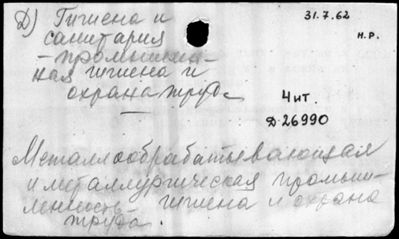 Д) Гигиена и
санитария
– промышлен-
ная гигиена и
охрана труда
31.7.62
н.р.
Чит.
Д-26990
Металлообрабатывающая
и металлургическая промыш-
ленность – гигиена и охрана
труда.